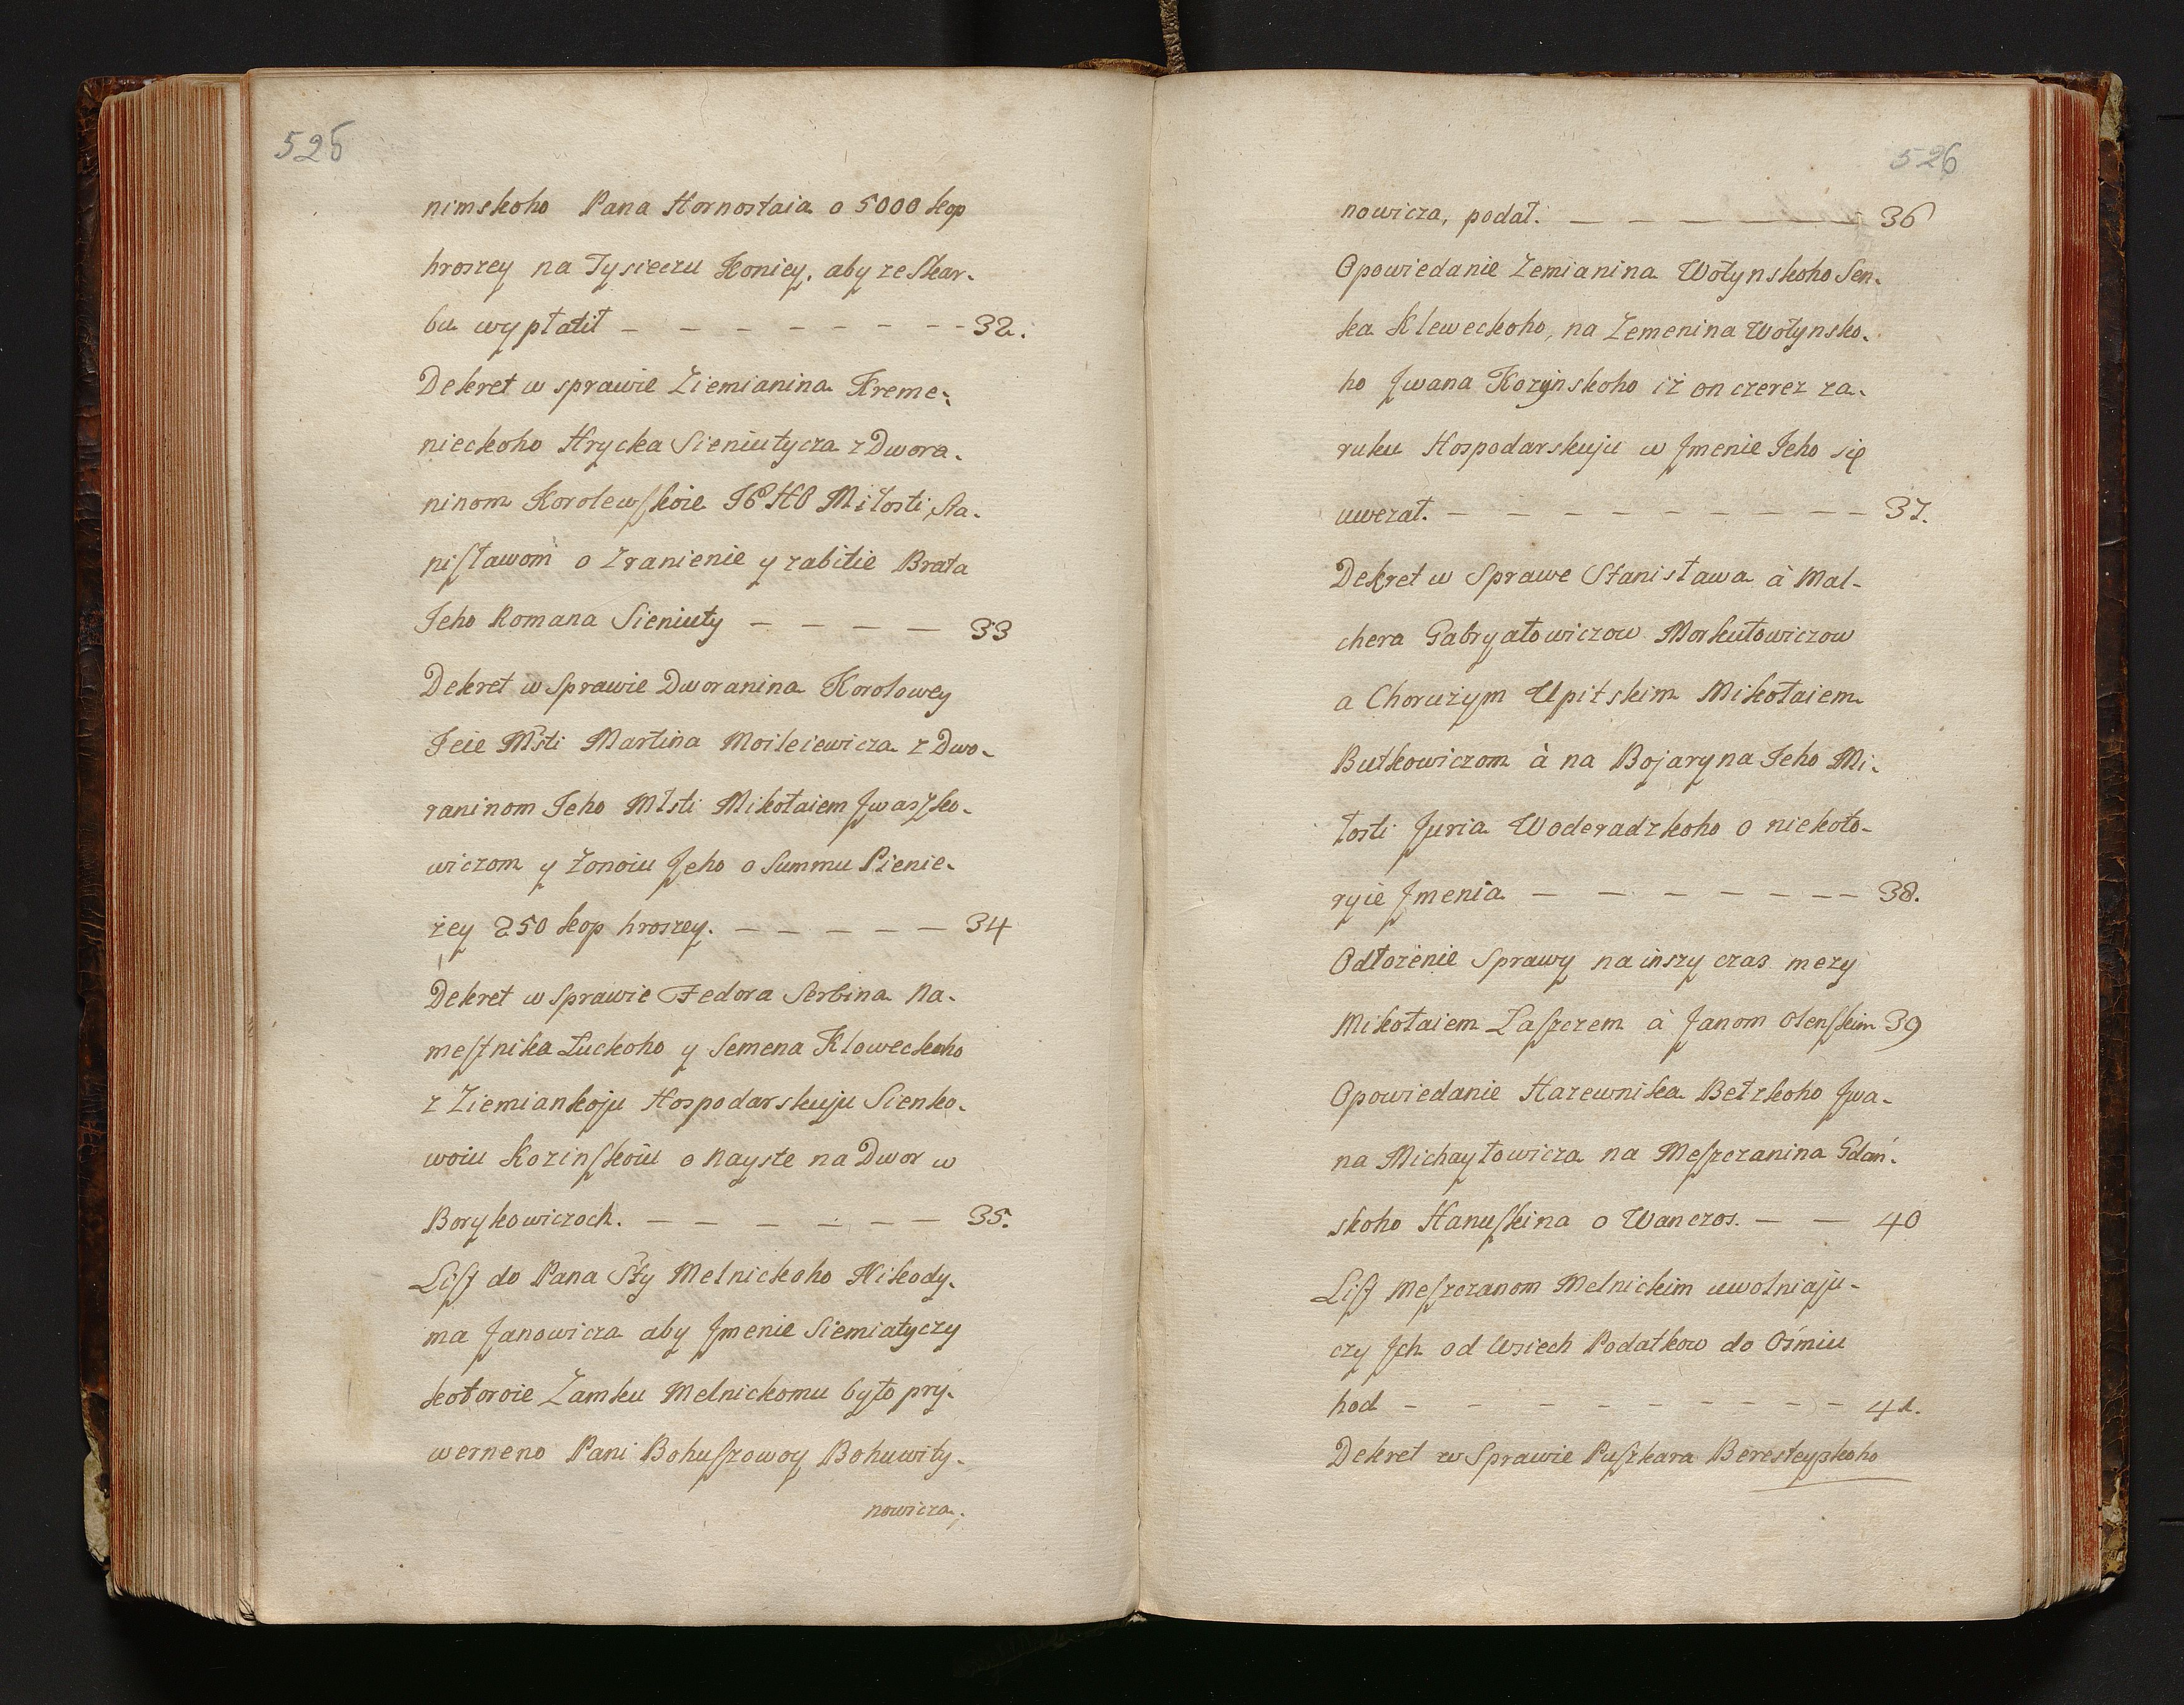 525
nimskoho Pana Hornostaia o 5000 kop
hroszey na Tysieczu Koniey, aby ze Skar-
bu wypłatił - - - - - - - - 32.
Dekret w sprawie Ziemianina Kreme-
nieckoho Hrycka Sieniutycza z Dwora-
ninom Korolewskoie Miłosti Sta-
nisławom o Zranienie y zabitie Brata
Jeho Romana Sieniuty - - - - 33
Dekret w Sprawie Dworanina Korolowey
Jeie Msti Martina Moileiewicza z Dwo-
raninom Jeho Młsti Mikołaiem Jwaszko-
wiczom y Zonoiu Jeho o Summu Pienie-
żey 250 kop hroszey. - - - - - 34
Dekret w Sprawie Fedora Serbina Na-
mestnika Łuckoho y Semena Kloweckoho
z Ziemiankoju Hospodarskuju Sienko-
woiu Kozinskoiu o Nayste na Dwor w
Borykowiczoch. - - - - - - 35.
List do Pana Sty Melnickoho Nikody-
ma Janowicza aby Jmenie Siemiatyczy
kotoroie Zamku Melnickomu było pry-
werneno Pani Bohuszowoy Bohuwity-
nowicza,
526
nowicza, podał. - - - - - - 36
Opowiedanie Zemianina Wołynskoho Sen-
ka Kleweckoho, na Zemenina Wołynsko-
ho Jwana Kozynskoho iż on czerez za-
ruku Hospodarskuju w Jmenie Jeho się
uwezał. - - - - - - - - 37.
Dekret w Sprawe Stanisława à Mal-
chera Gabryałowiczow Morkutowiczow
a Chorużym Upitskim Mikołaiem
Butkowiczom à na Bojaryna Jeho Mi-
łosti Juria Woderadzkoho o niekoto-
ryie Jmenia - - - - - - - 38.
Odłożenie Sprawy na inszy czas mezy
Mikołaiem Łaszczem à Janom Olenskim 39
Opowiedanie Harewnika Betzkoho Jwa-
na Michayłowicza na Meszczanina Gdań-
skoho Hanuskina o Wanczos. - - 40
List Meszczanom Melnickim uwolniaju-
czy Jch od Wsiech Podatkow do Ośmiu
hod - - - - - - - - - 41.
Dekret w Sprawie Puszkara Beresteyskoho